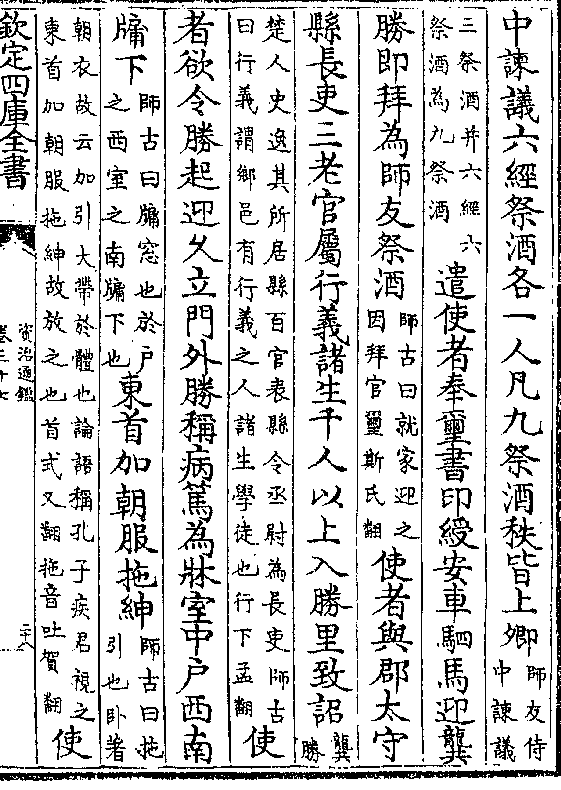 中諫議六經祭酒各一人凡九祭酒秩皆上卿師友侍中諫議
三祭酒并六經六祭酒為九祭酒遣使者奉璽書印綬安車駟馬迎龔
勝即拜為師友祭酒師古曰就家迎之因拜官璽斯氏翻使者與郡太守
縣長吏三老官屬行義諸生千人以上入勝里致詔龔勝
楚人史逸其所居縣百官表縣令丞尉為長吏師古曰行義謂鄉邑有行義之人諸生學徒也行下孟翻使
者欲令勝起迎久立門外勝稱病篤為牀室中户西南
牖下師古曰牖窓也於户之西室之南牖下也東首加朝服拖紳師古曰拖引也卧著
朝衣故云加引大帶於體也論語稱孔子疾君視之東首加朝服拖紳故放之也首式又翻拖音吐賀翻使
欽定四庫全書
資治通鑑
卷三十七
二十八